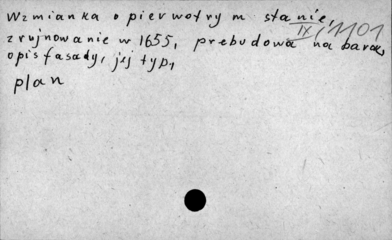 Wzmianka o pierwotrym stanie,
IX/1101
zrujnowanie w 1655, przebudowa na barok,
opis fasady, jej typ,
plan